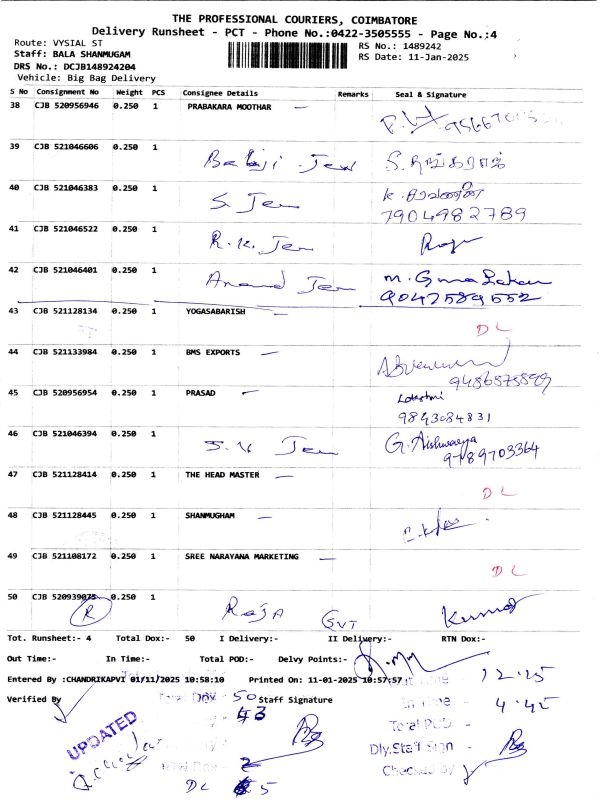 THE PROFESSIONAL COURIERS, COIMBATORE
Delivery Runsheet - PCT - Phone No.:0422-3505555 - Page No.:4
Route: VYSIAL ST
Staff: BALA SHANMUGAM
RS No.: 1489242
DRS No.: DCJB148924204
RS Date: 11-Jan-2025
Vehicle: Big Bag Delivery
S No Consignment No Weight PCS Consignee Details Remarks Seal & Signature
38 CJB 520956946 0.250 1 PRABAKARA MOOTHAR —
39 CJB 521046606 0.250 1 Balaji Jew
40 CJB 521046383 0.250 1 S. Jew
7904982789
41 CJB 521046522 0.250 1 R.K. Jew Raja
42 CJB 521046401 0.250 1 Anand Jew
9047589552
43 CJB 521128134 0.250 1 YOGASABARISH — DL
44 CJB 521133984 0.250 1 BMS EXPORTS —
9486575899
45 CJB 520956954 0.250 1 PRASAD — Lakshmi
9843084831
46 CJB 521046394 0.250 1 S.V Jew G. Aishwarya
9789703364
47 CJB 521128414 0.250 1 THE HEAD MASTER — DL
48 CJB 521128445 0.250 1 SHANMUGHAM —
49 CJB 521108172 0.250 1 SREE NARAYANA MARKETING — DL
50 CJB 520939075 0.250 1 Raja GVT Kumar
R
Tot. Runsheet:- 4 Total Dox:- 50 I Delivery:- II Delivery:- RTN Dox:-
Out Time:- In Time:- Total POD:- Delvy Points:-
Entered By :CHANDRIKAPVI 01/11/2025 10:58:10 Printed On: 11-01-2025 10:57:57
12.25
Verified By Total Dox - 50 Staff Signature In Time - 4.45
43 Total Pod -
UPDATED
Dly.Staff Sign -
Total Dox - 2 Checked By
DL 5